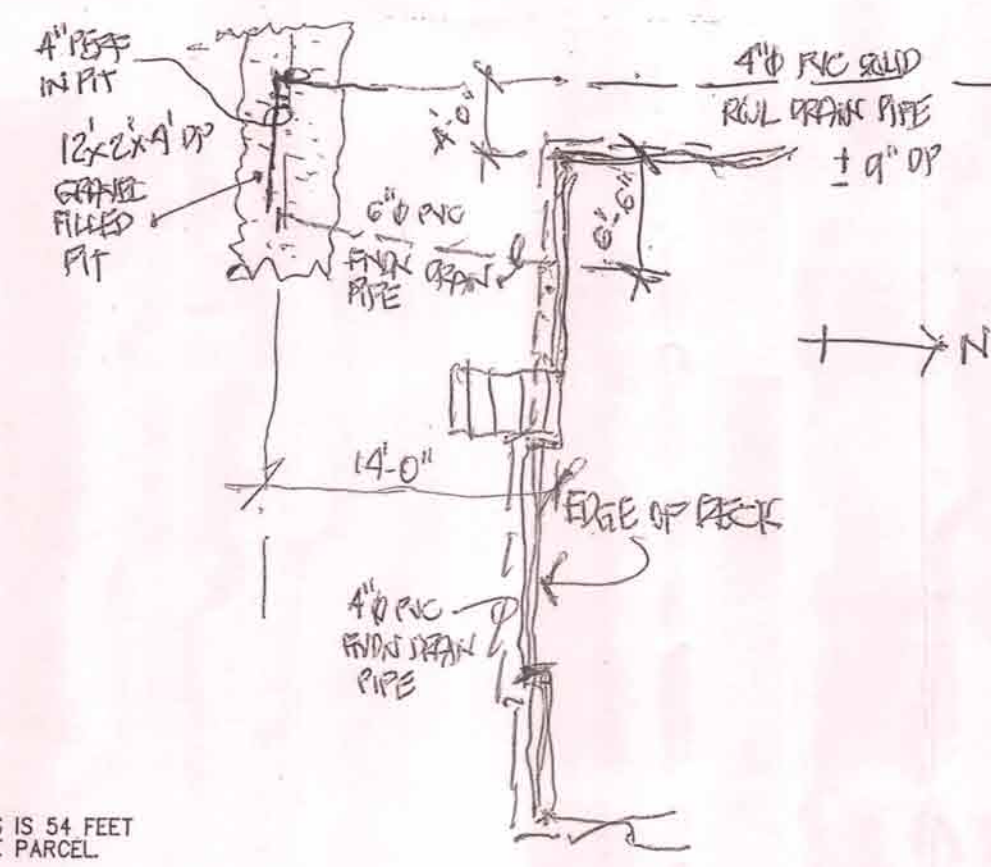 4" PERF
IN PIT
12'x2'x4' DP
GRAVEL
FILLED
PIT
4'-0"
4"Φ PVC SOLID
RWL DRAIN PIPE
± 9" DP
6"Φ PVC
FNDN DRAIN
PIPE
6'-6"
N
14'-0"
EDGE OF DECK
4"Φ PVC
FNDN DRAIN
PIPE
IS 54 FEET
PARCEL.